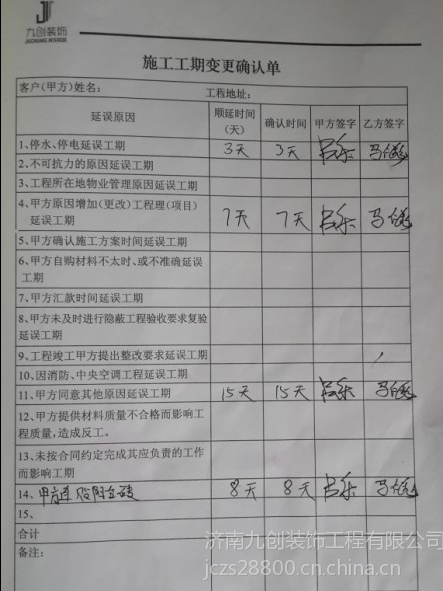 九创装饰
JIUCHUANG INTERIOR
施工工期变更确认单
客户(甲方)姓名:
工程地址:
延误原因
顺延时间
(天)
确认时间
甲方签字
乙方签字
1、停水、停电延误工期
3天
3天
2、不可抗力的原因延误工期
3、工程所在地物业管理原因延误工期
4、甲方原因增加(更改)工程理(项目)
延误工期
7天
7天
5、甲方确认施工方案时间延误工期
6、甲方自购材料不太时、或不准确延误
工期
7、甲方汇款时间延误工期
8、甲方未及时进行隐蔽工程验收要求复验
延误工期
9、工程竣工甲方提出整改要求延误工期
10、因消防、中央空调工程延误工期
11、甲方同意其他原因延误工期
15天
15天
12、甲方提供材料质量不合格而影响工
程质量,造成反工。
13、未按合同约定完成其应负责的工作
而影响工期
14、甲方
8天
8天
15、
合计
备注:
济南九创装饰工程有限公司
jczs28800.cn.china.cn